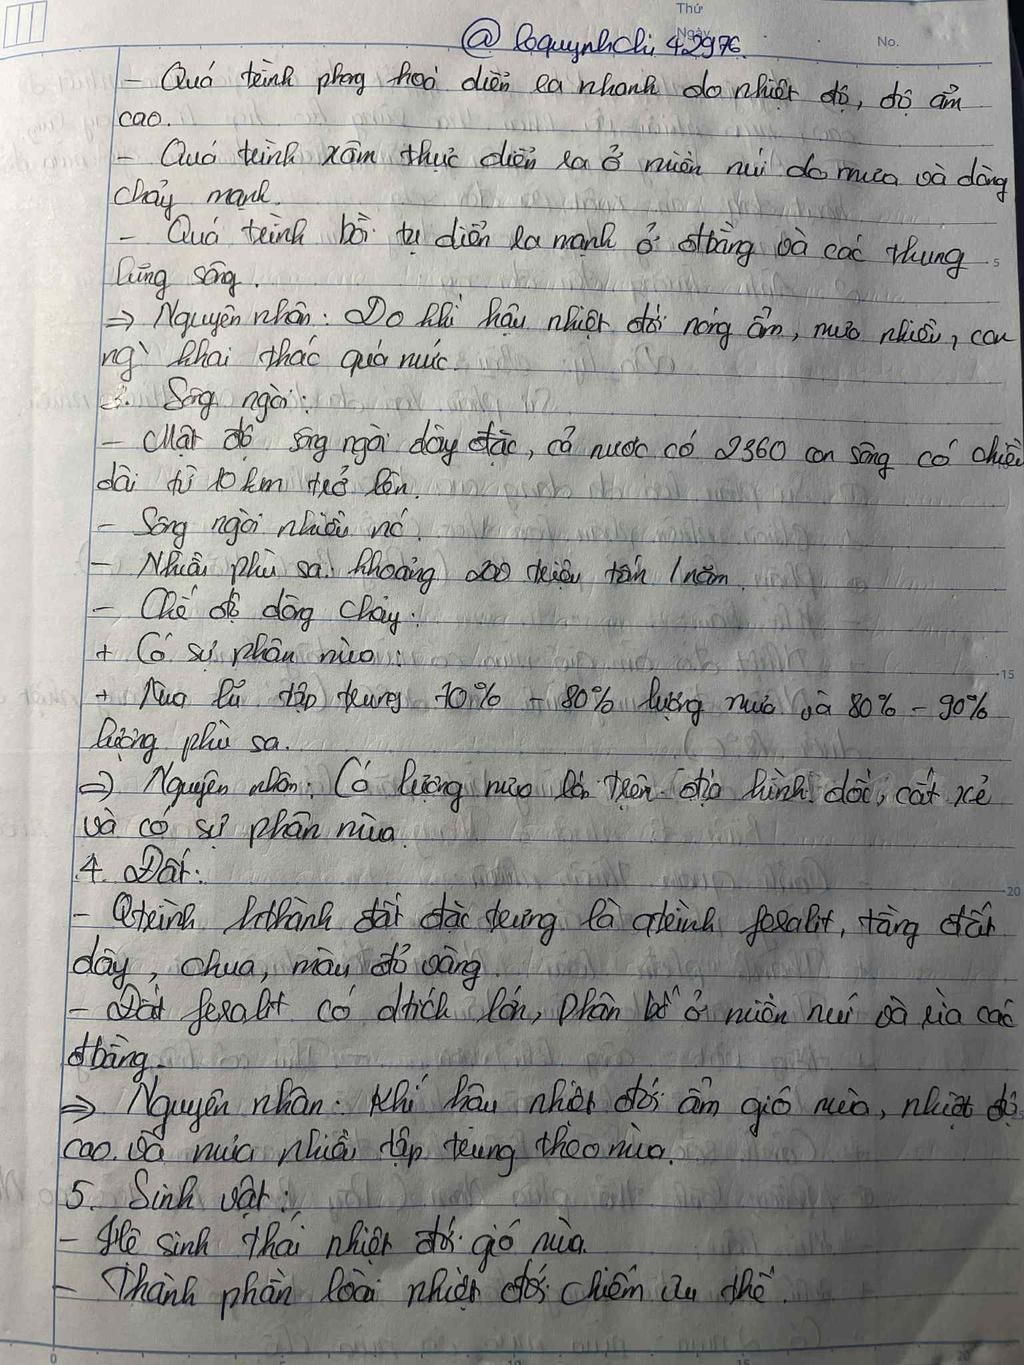 Thứ
Ngày
No.
@lequynhchi 42976.
- Quá trình phong hoá diễn ra nhanh do nhiệt độ, độ ẩm
cao.
- Quá trình xâm thực diễn ra ở miền núi do mưa và dòng
chảy mạnh.
- Quá trình bồi tụ diễn ra mạnh ở đbằng và các thung
lũng sông.
⇒ Nguyên nhân: Do khí hậu nhiệt đới nóng ẩm, mưa nhiều, con
ng` khai thác quá mức.
3. Sông ngòi:
- Mật độ sông ngòi dày đặc, cả nước có 2360 con sông có chiều
dài từ 10km trở lên.
- Sông ngòi nhiều nc.
- Nhiều phù sa: khoảng 200 triệu tấn /năm
- Chế độ dòng chảy:
+ Có sự phân mùa:
+ Mùa lũ tập trung 70% - 80% lượng nước và 80% - 90%
lượng phù sa.
⇒ Nguyên nhân: Có lượng mưa lớn trên địa hình dốc, cắt xẻ
và có sự phân mùa.
4. Đất:
- Qtrình hthành đất đặc trưng là qtrình feralit, tầng đất
dày, chua, màu đỏ vàng.
- Đất feralit có dtích lớn, phân bố ở miền núi và rìa các
đbằng.
⇒ Nguyên nhân: Khí hậu nhiệt đới ẩm gió mùa, nhiệt độ
cao và mưa nhiều tập trung theo mùa.
5. Sinh vật:
- Hệ sinh thái nhiệt đới gió mùa.
- Thành phần loài nhiệt đới chiếm ưu thế.
5
15
20
0
10
15
20